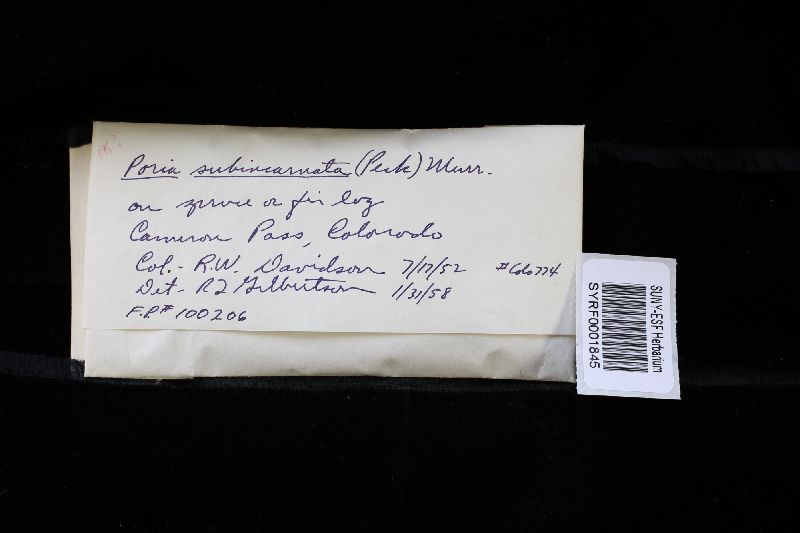 Poria subincarnata (Peck) Murr.
on spruce or fir log
Cameron Pass, Colorado
Col.- R.W. Davidson 7/17/52 #Colo 774
Det- RL Gilbertson 1/31/58
F.P.# 100206
SUNY-ESF Herbarium
SYRF0001845